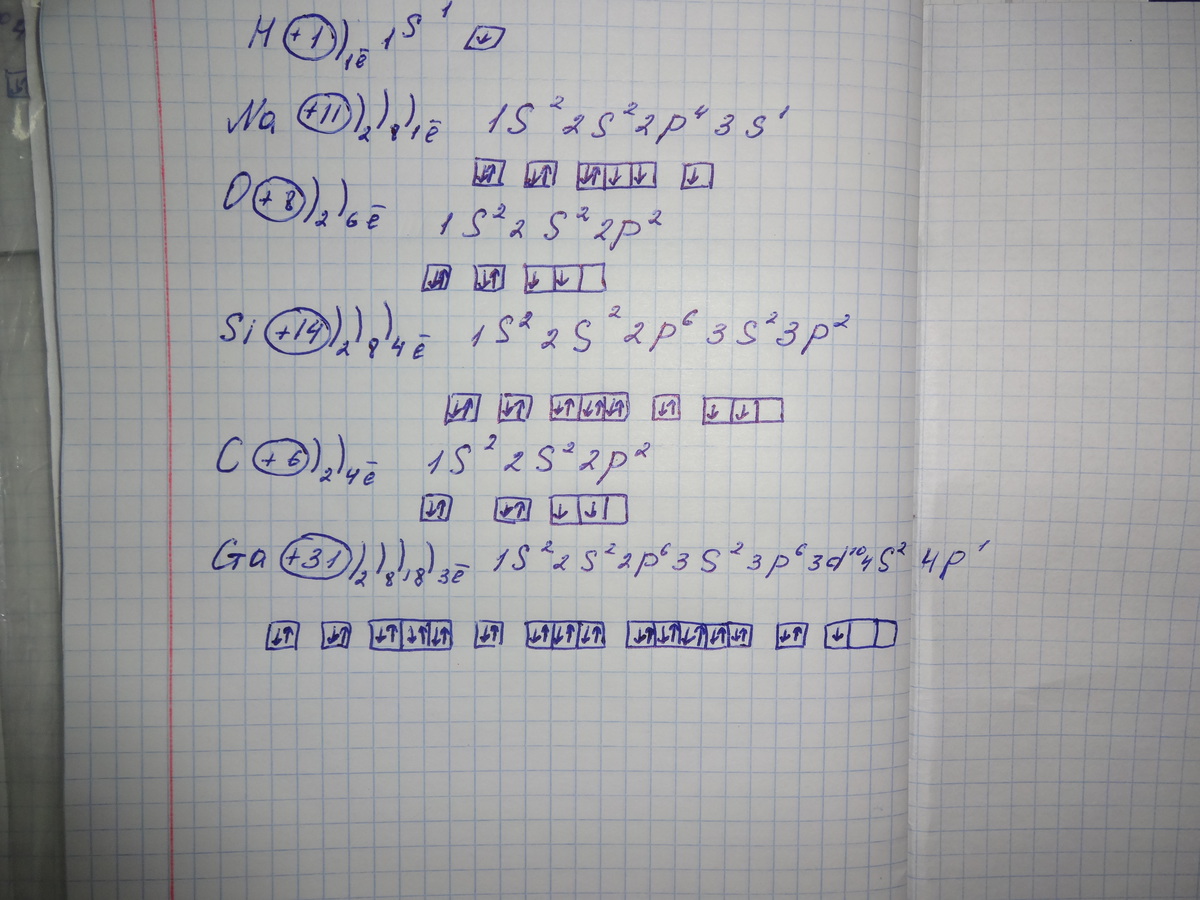 H +1 ) 1ē 1S¹ ↓
Na +11 ) ) ) 2 8 1ē 1S² 2S² 2p⁴ 3S¹
↓↑ ↓↑ ↓↑ ↓ ↓ ↓
O +8 ) ) 2 6ē 1S² 2S² 2p²
↓↑ ↓↑ ↓ ↓
Si +14 ) ) ) 2 8 4ē 1S² 2S² 2p⁶ 3S² 3p²
↓↑ ↓↑ ↓↑ ↓↑ ↓↑ ↓↑ ↓ ↓
C +6 ) ) 2 4ē 1S² 2S² 2p²
↓↑ ↓↑ ↓ ↓
Ga +31 ) ) ) ) 2 8 18 3ē 1S² 2S² 2p⁶ 3S² 3p⁶ 3d¹⁰ 4S² 4p¹
↓↑ ↓↑ ↓↑ ↓↑ ↓↑ ↓↑ ↓↑ ↓↑ ↓↑ ↓↑ ↓↑ ↓↑ ↓↑ ↓↑ ↓↑ ↓